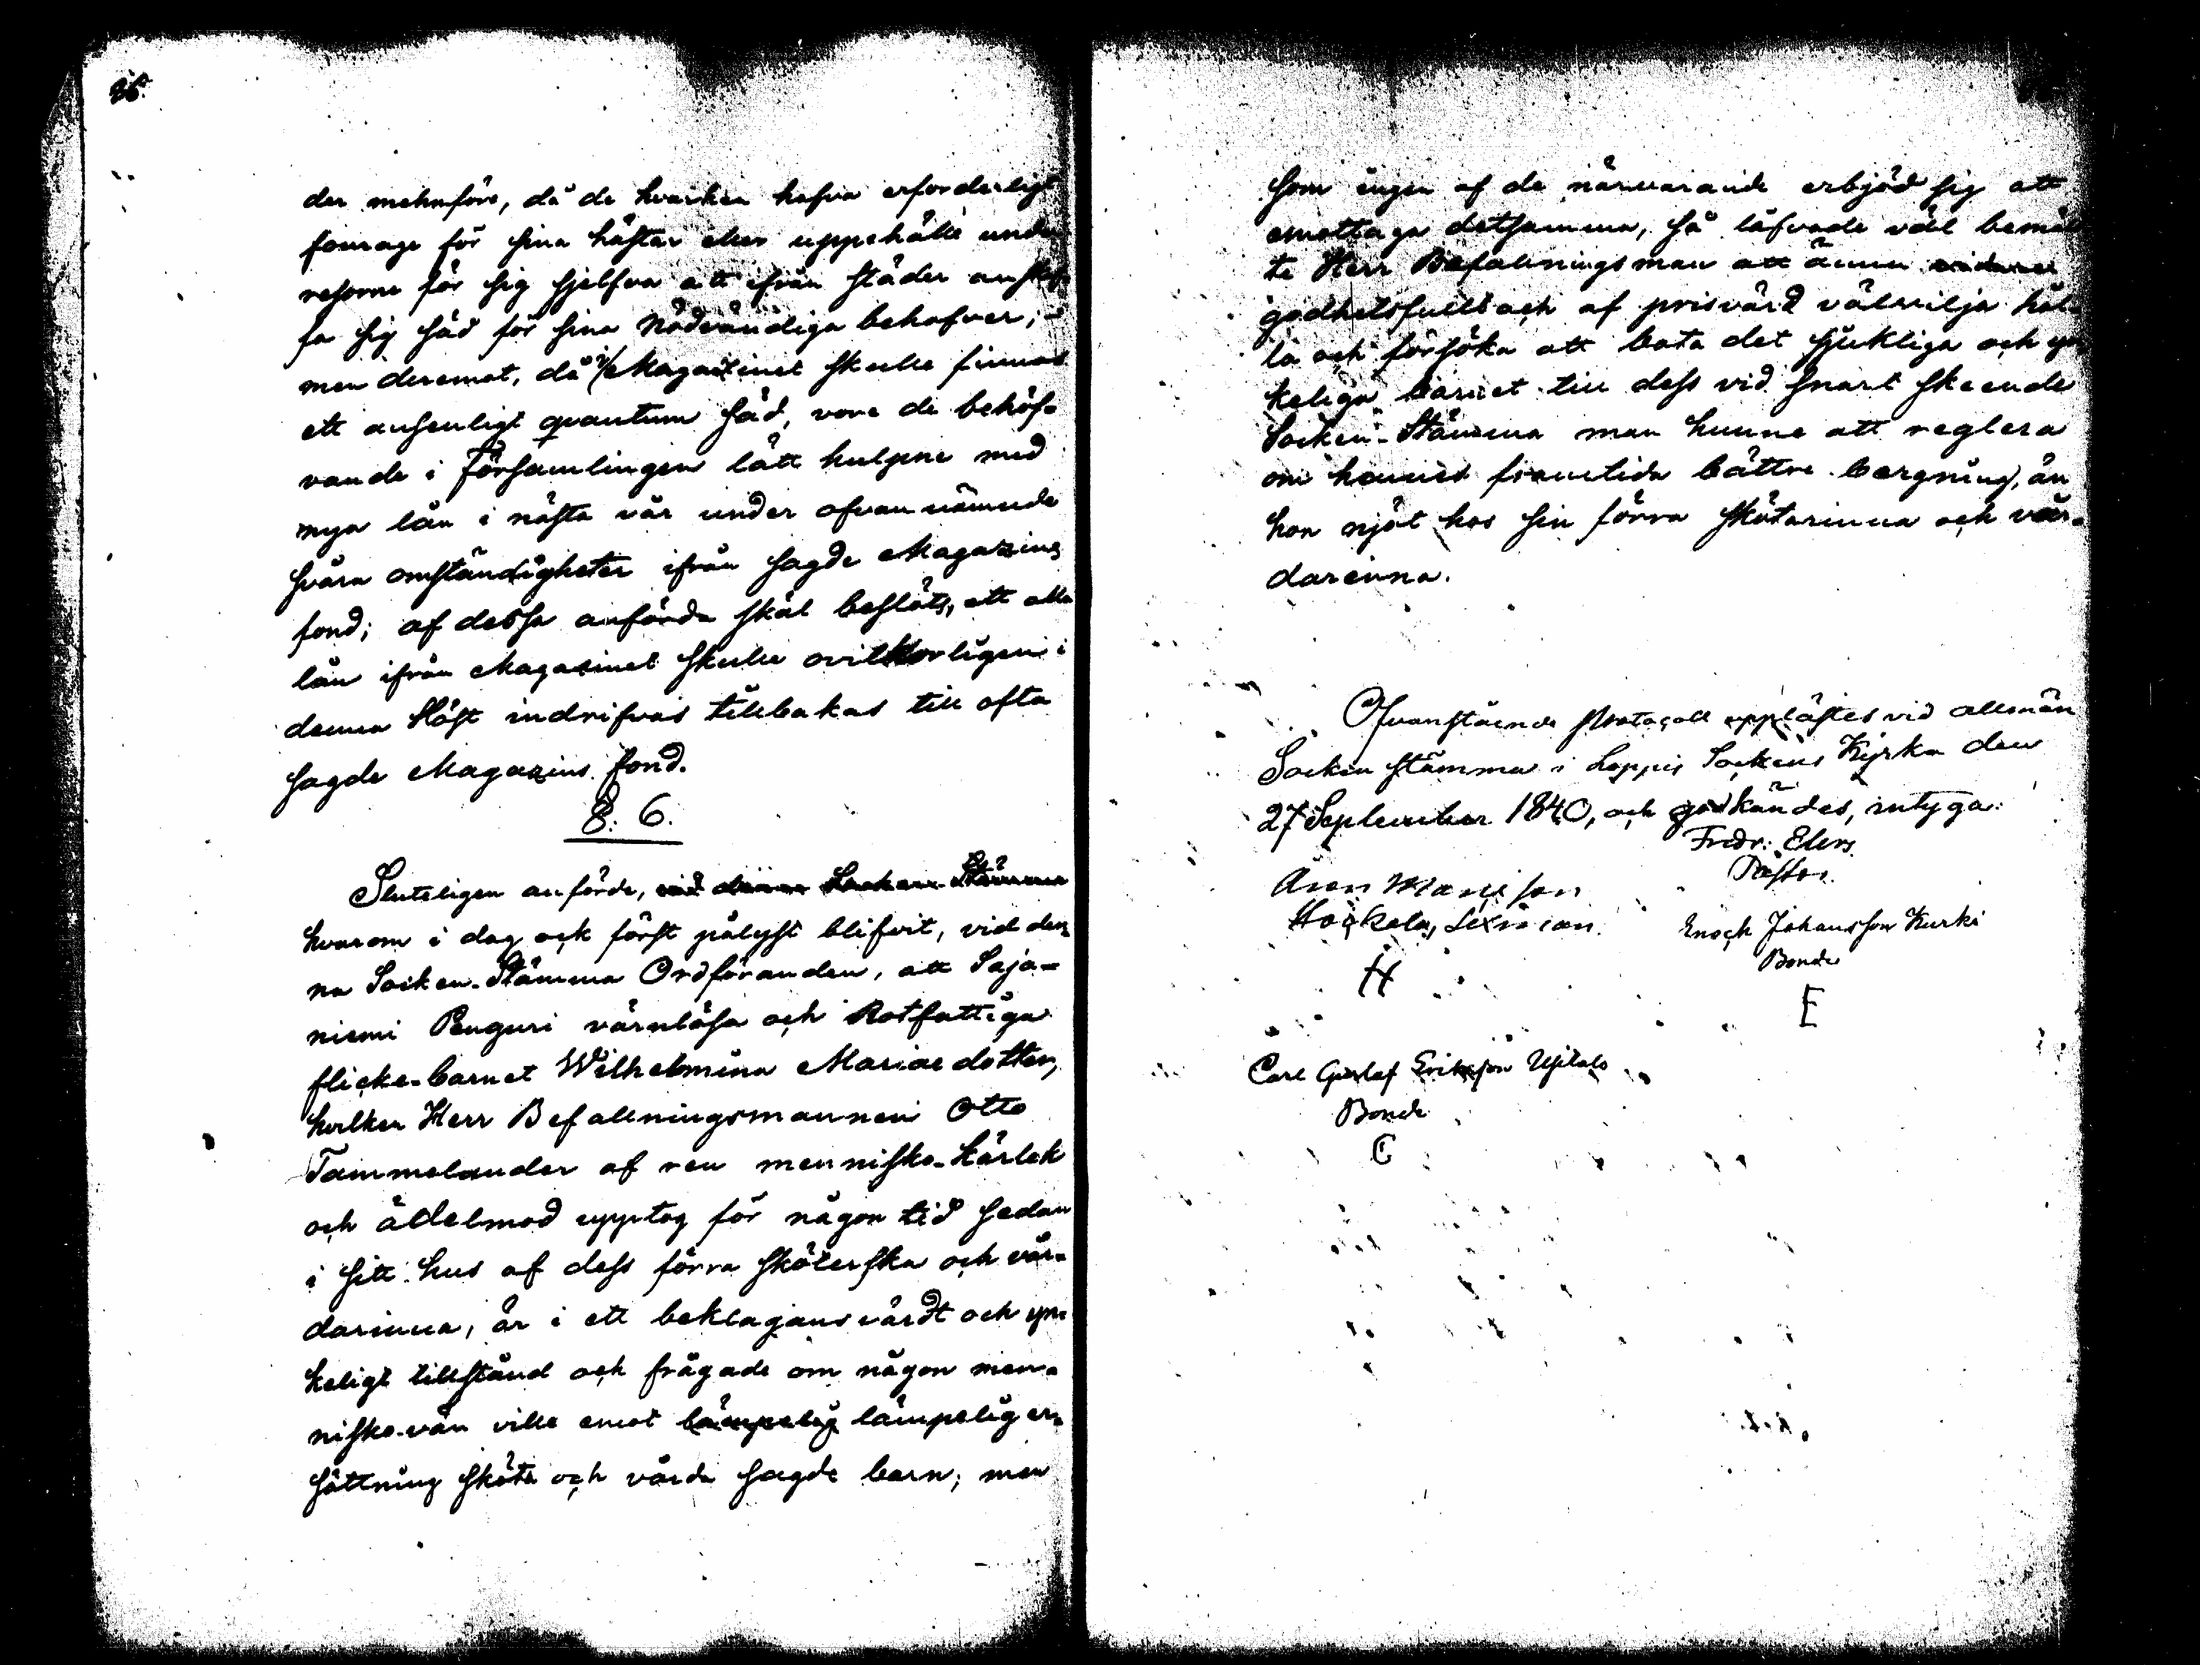 der mehnföre, då de hvarken hafva erforderligt
fourage för sina hästar eller uppehälle under
resorne för sig sjelfva att ifrån städer anskaf-
fa sig säd för sina nödvändiga behofver; -
men deremot, då i Magazinet skulle finnas
ett ansenligt qvantum säd, vore de behöf-
vande i Församlingen lätt hulpne med
nya lån i nästa vår under ofvannämnde
svåra omständigheter ifrån sagde Magazins
fond; af dessa anförda skäl beslöts, att alla
lån ifrån Magazinet skulle ovilkorligen i
denna Höst indrifvas tillbakas till ofta
sagde Magazins fond.
§. 6.
Sluteligen anförde, vid denna Socken-Stämma
hvarom i dag ock först pålyst blifvit, vid den-
na Socken-Stämma Ordföranden, att Saja-
niemi Penguri värnlösa och Rotfattiga
flicke-barnet Wilhelmina Mariae dotter,
hvilken Herr Befallningsmannen Otto
Tammelander af ren mennisko-kärlek
och ädelmod upptog för någon tid sedan
i sitt hus af dess förra sköterska och vår-
darinna, är i ett beklagansvärdt och yn-
keligt tillstånd och frågade om någon men-
nisko-vän ville emot lämpelig lämpelig er-
sättning sköta och vårda sagde barn; men
som ingen af de närvarande erbjöd sig att
emottaga detsamma, så låfvade väl bemäl-
te Herr Befallningsman att ännu vidare
godhetsfullt och af prisvärd välvilja hål-
la och försöka att bota det sjukliga och yn-
keliga barnet till dess vid snart skeende
Socken-Stämma man hunne att reglera
om hennes framtida bättre bergning, än
hon njöt hos sin förra skötarinna och vår-
darinna.
Ofvanstående Protocoll upplästes vid allmän
Socken stämma i Loppis Sockens Kyrka den
27 September 1840, och godkändes, intyga:
Fredr: Elers.
Pastor.
Aron Mansson
Hockela, Lexman.
H
Enoch Johansson Kurki
Bonde
E
Carl Gustaf Eriksson Ujtalo
Bonde
C